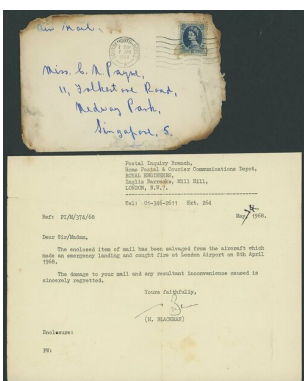 Air Mail.
Miss. C. M. Payne,
11, Folkestone Road,
Medway Park,
Singapore, 5.
Postal Inquiry Branch,
Home Postal & Courier Communications Depot,
ROYAL ENGINEERS,
Inglis Barracks, Mill Hill,
LONDON, N.W.7.
Tel: 01-346-2611 Ext. 264
Ref: PI/M/37A/68
May 1968.
Dear Sir/Madam,
The enclosed item of mail has been salvaged from the aircraft which
made an emergency landing and caught fire at London Airport on 8th April
1968.
The damage to your mail and any resultant inconvenience caused is
sincerely regretted.
Yours faithfully,
(N. BLACKMAN)
Enclosure: